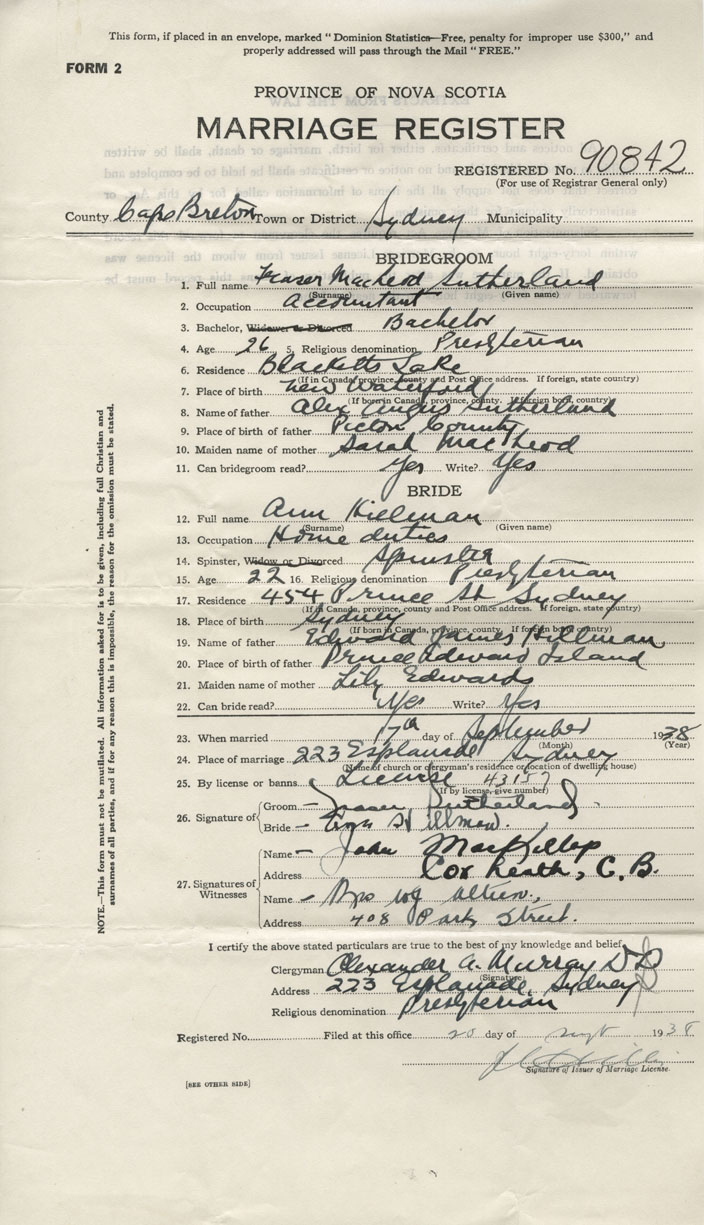 This form, if placed in an envelope, marked "Dominion Statistics—Free, penalty for improper use $300," and
properly addressed will pass through the Mail "FREE."
FORM 2
PROVINCE OF NOVA SCOTIA
MARRIAGE REGISTER
REGISTERED No. 90842
(For use of Registrar General only)
County Cape Breton Town or District Sydney Municipality
BRIDEGROOM
1. Full name Fraser MacLeod Sutherland
(Surname) (Given name)
2. Occupation Accountant
3. Bachelor, Widower or Divorced Bachelor
4. Age 26 5. Religious denomination Presbyterian
6. Residence Blacketts Lake
(If in Canada, province, county and Post Office address. If foreign, state country)
7. Place of birth New Waterford
(If born in Canada, province, county. If foreign born, country)
8. Name of father Alex Angus Sutherland
9. Place of birth of father Pictou County
10. Maiden name of mother Sarah MacLeod
11. Can bridegroom read? Yes Write? Yes
BRIDE
12. Full name Ann Hillman
(Surname) (Given name)
13. Occupation Home duties
14. Spinster, Widow or Divorced Spinster
15. Age 22 16. Religious denomination Presbyterian
17. Residence 454 Prince St Sydney
(If in Canada, province, county and Post Office address. If foreign, state country)
18. Place of birth Sydney
(If born in Canada, province, county. If foreign born, country)
19. Name of father Edward James Hillman
20. Place of birth of father Prince Edward Island
21. Maiden name of mother Lily Edwards
22. Can bride read? Yes Write? Yes
23. When married 17th day of September 1938
(Month) (Year)
24. Place of marriage 223 Esplanade Sydney
(Name of church or clergyman's residence or location of dwelling house)
25. By license or banns License 43157
(If by license, give number)
26. Signature of Groom Fraser Sutherland
Bride Ann Hillman.
27. Signatures of Witnesses
Name John MacKillop
Address Cox heath, C. B.
Name
Address 408 Park Street.
I certify the above stated particulars are true to the best of my knowledge and belief,
Clergyman Alexander A. Murray DD
(Signature)
Address 223 Esplanade, Sydney
Religious denomination Presbyterian
Registered No. Filed at this office 20 day of Sept 1938
Signature of Issuer of Marriage License.
[SEE OTHER SIDE]
NOTE.—This form must not be mutilated. All information asked for is to be given, including full Christian and
surnames of all parties, and if for any reason this is impossible, the reason for the omission must be stated.